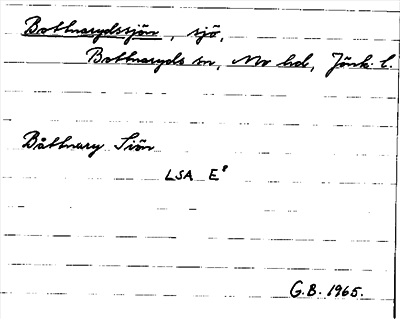 Bottnarydssjön, sjö,
Bottnaryds sn, Mo hd, Jönk. l.
Båttnary Siön
LSA E⁸
G.B. 1965.